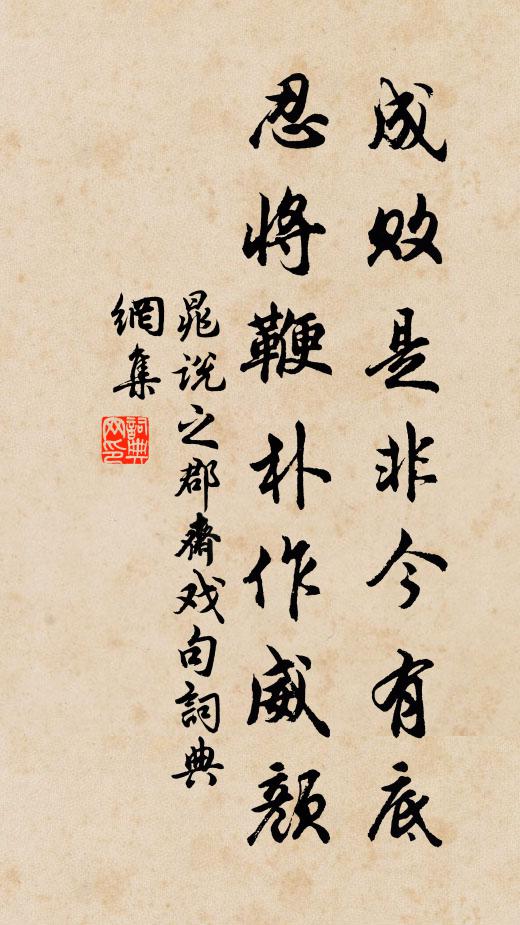 成败是非今有底
忍将鞭朴作威颜
晁说之郡斋戏句詞典
網集
詞典
网印